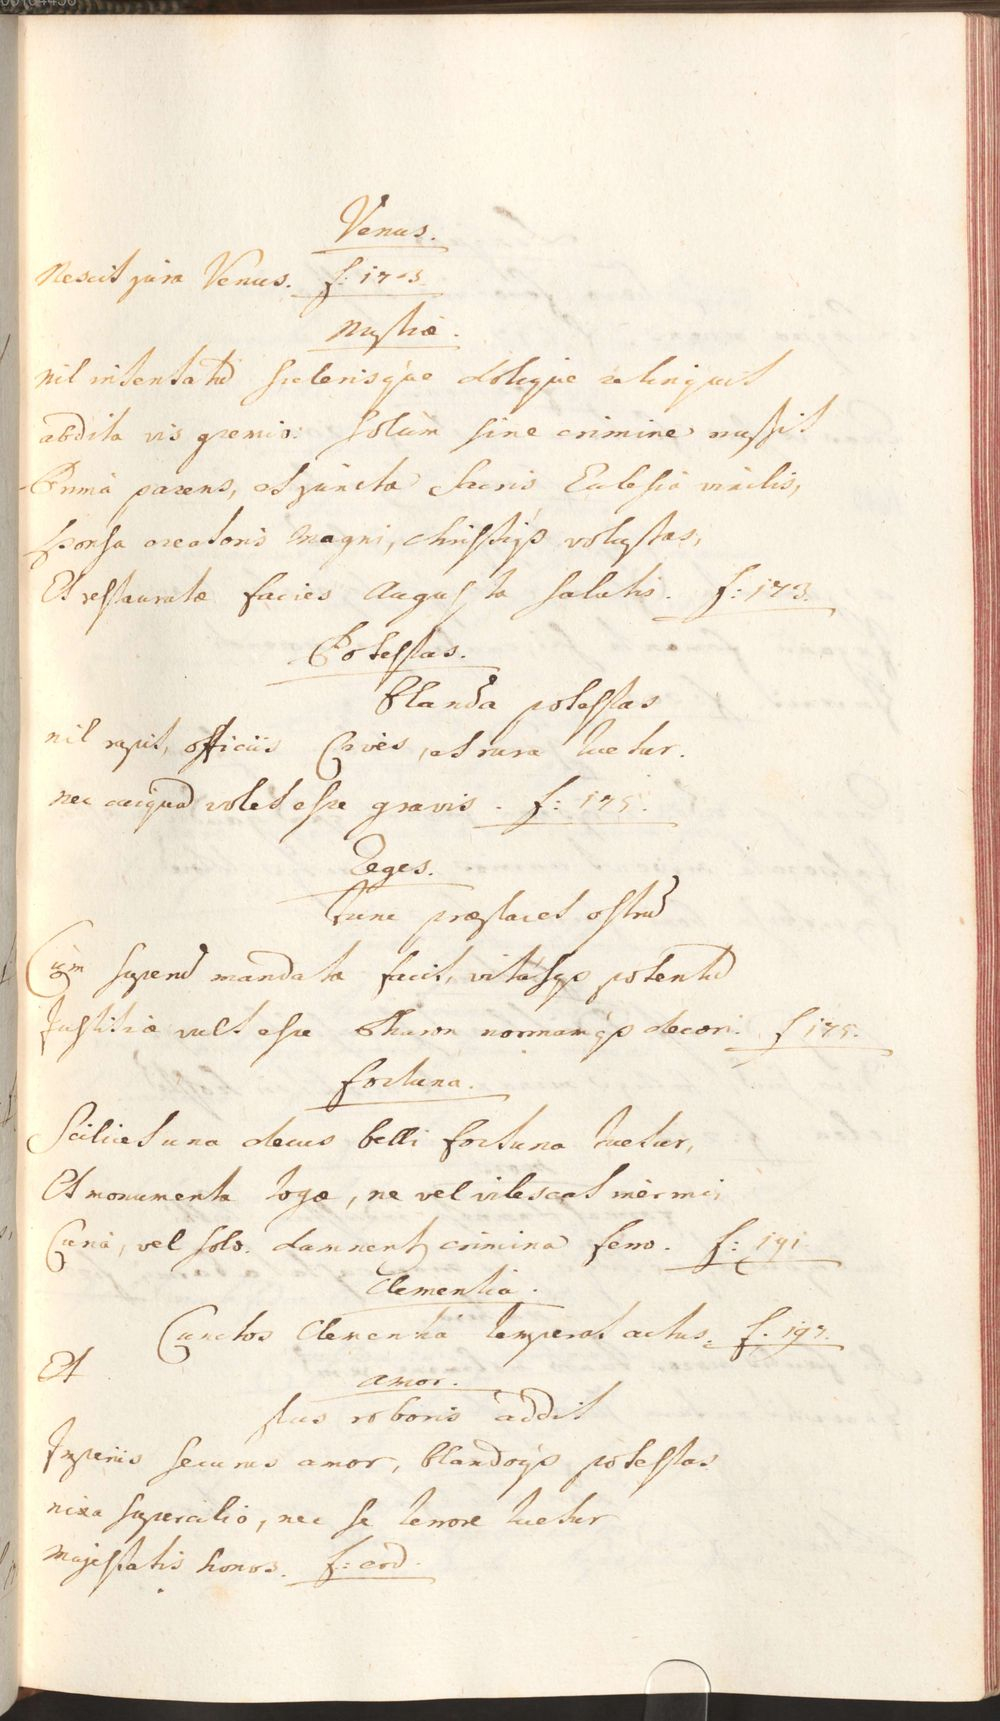 Venus.
Nescit jura Venus. f: 173.
Nuptiæ.
nil intentatū scelerisque dolique relinquit
abdita vis gremio: solùm sine crimine nupsit
Prima parens, et juncta sacris Eclesia vinclis,
sponsa creatoris magni, christiqꝫ voluptas,
Et restauratæ facies Augusta salutis. f: 173.
Potestas.
blanda potestas
nil rapit, officiis Cives, et rura tuetur.
nec cuiquā volet esse gravis. f: 175.
Reges.
tunc præplacet ostrū
Cùm superū mandata facit, vitasqꝫ potentū
Justitiæ vult esse Pharon normamqꝫ decori. f 175.
fortuna.
Scilicet una decus belli fortuna tuetur,
Et monumenta togæ, ne vel vilescat inermis
Curia, vel solo damnentʒ crimina ferro. f: 191.
Clementia.
Cunctos Clementia temperat actus. f. 197.
Et
amor.
plus roboris addit
Imperiis securus amor, blandoqꝫ potestas
nixa supercilio, nec se terrore tuetur
Majestatis honos. f: eod.